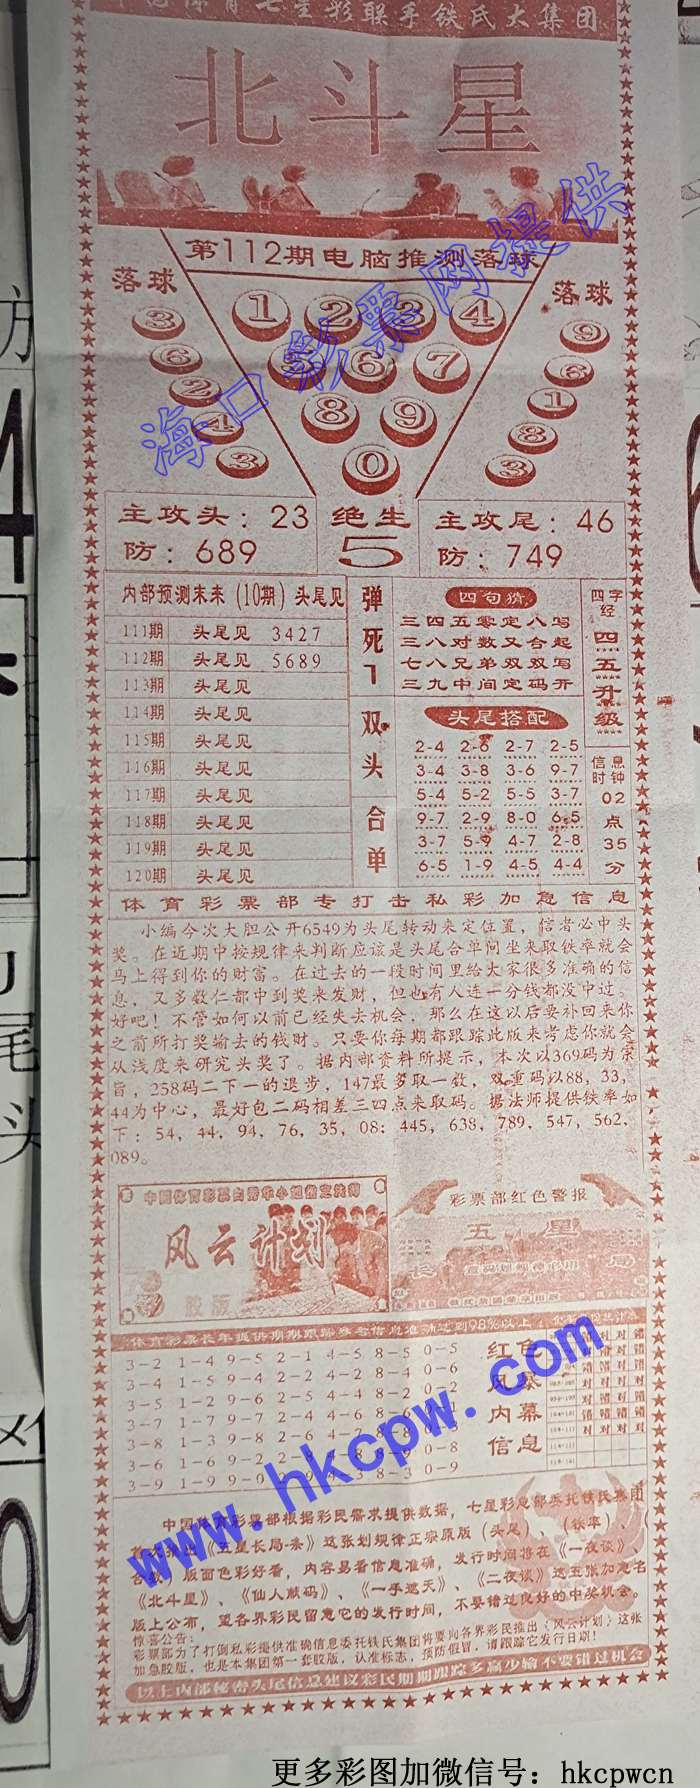 七星彩联手铁氏大集团
北斗星
第112期电脑推测落球
落球
3
6
2
4
3
1 2 3 4
6 7
8 9
0
落球
9
6
1
8
3
主攻头：23
防：689
绝生
5
主攻尾：46
防：749
内部预测未来（10期）头尾见
111期 头尾见 3427
112期 头尾见 5689
113期 头尾见
114期 头尾见
115期 头尾见
116期 头尾见
117期 头尾见
118期 头尾见
119期 头尾见
120期 头尾见
弹死7
双头
合单
四句猜
三四五零定八写
三八对数又合起
七八兄弟双双写
三九中间定码开
头尾搭配
2-4 2-6 2-7 2-5
3-4 3-8 3-6 9-7
5-4 5-2 5-5 3-7
9-7 2-9 8-0 6-5
3-7 5-9 4-7 2-8
6-5 1-9 4-5 4-4
四字经
四五升级
信息时钟
02
点
35
分
体育彩票部专打击私彩加急信息
小编今次大胆公开6549为头尾转动来定位置，信者必中头
奖。在近期中按规律来判断应该是头尾合单间坐来取铁率就会
马上得到你的财富。在过去的一段时间里给大家很多准确的信
息，又多数仁都中到奖来发财，但也有人连一分钱都没中过。
好吧！不管如何以前已经失去机会，那么在这以后要补回来你
之前所打奖输去的钱财。只要你每期都跟踪此版来考虑你就会
从浅度来研究头奖了。据内部资料所提示，本次以369码为宗
旨，258码二下一的退步，147最多取一数，双重码以88，33，
44为中心，最好包二码相差三四点来取码。据法师提供铁率如
下：54，44，94，76，35，08：445，638，789，547，562，
089。
风云计划
胶版
彩票部红色警报
五星
长 局
体育彩票长年提供期期跟踪参考信息准确达到98%以上
3-2 1-4 9-5 2-1 4-5 8-5 0-5
3-4 1-5 9-4 2-2 4-2 8-4 0-6
3-5 1-2 9-6 2-5 4-4 8-2 0-2
3-7 1-7 9-7 2-4 4-6 8-6
3-8 1-3 9-8 2-6 4-7 8-8
3-6 1-6 9-2 0-8
3-9 1-9 9-0 4-3 8-3 0-9
红色
风暴
内幕
信息
中国体育彩票部根据彩民需求提供数据，七星彩总部委托铁氏集团
首次推出《五星长局-条》这张划规律正宗原版（头尾）、（铁率）、（
合数）版面色彩好看，内容易看信息准确，发行时间将在《一夜谈》、
《北斗星》、《仙人献码》、《一手遮天》、《二夜谈》这五张加急名
版上公布，望各界彩民留意它的发行时间，不要错过良好的中奖机会。
惊喜公告：
彩票部为了打倒私彩提供准确信息委托铁氏集团将要向各界彩民推出《风云计划》这张
加急胶版，也是本集团第一套胶版，认准标志，预防假冒，请跟踪它发行日期！
以上内部秘密头尾信息建议彩民期期跟踪多赢少输不要错过机会
海口彩票网提供
www.hkcpw.com
更多彩图加微信号：hkcpwcn